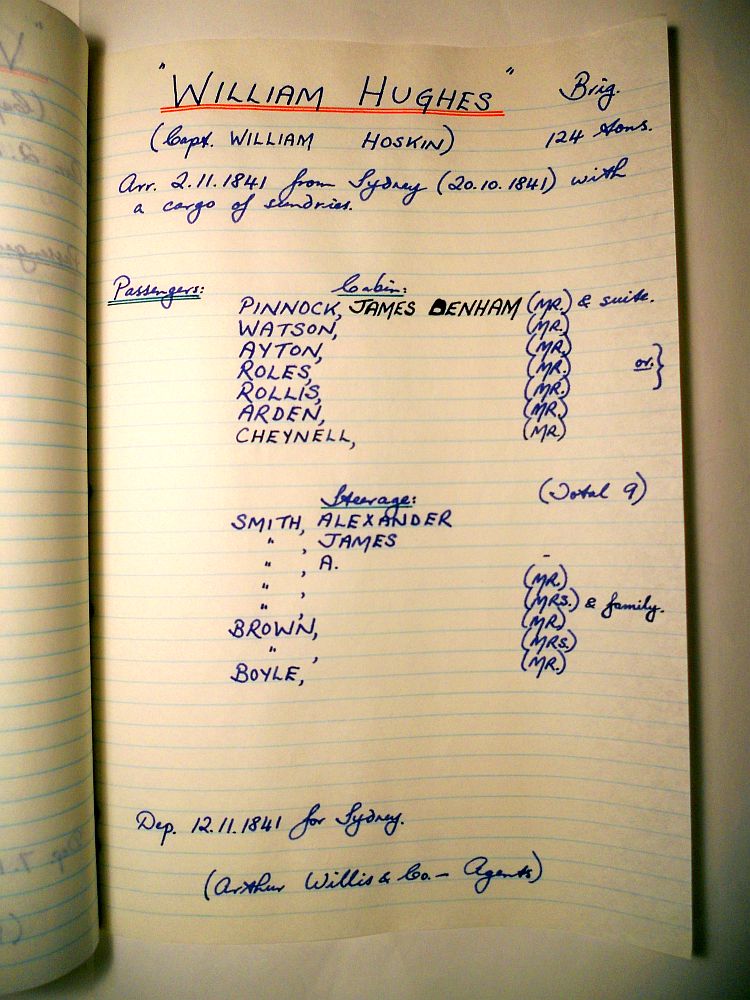 "WILLIAM HUGHES" Brig.
(Capt. WILLIAM HOSKIN) 124 tons.
Arr. 2.11.1841 from Sydney (20.10.1841) with
a cargo of sundries.
Passengers: Cabin:
PINNOCK, JAMES DENHAM (MR.) & suite.
WATSON, (MR.)
AYTON, (MR.)
ROLES, (MR.) or. }
ROLLIS, (MR.)
ARDEN, (MR.)
CHEYNELL, (MR.)
Steerage: (Total 9)
SMITH, ALEXANDER
" , JAMES
" , A. -
" , (MR.)
" , (MRS.) & family.
BROWN, (MR.)
" , (MRS.)
BOYLE, (MR.)
Dep. 12.11.1841 for Sydney.
(Arthur Willis & Co. - Agents)